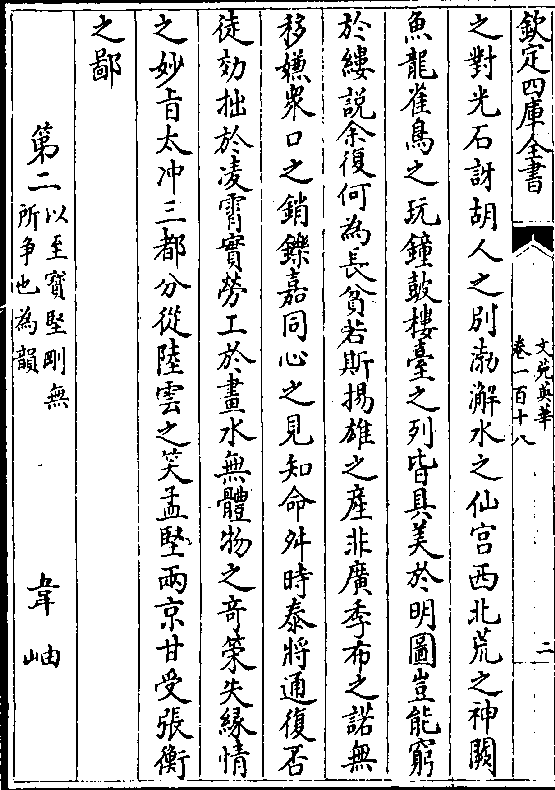 欽定四庫全書
文苑英華
卷一百十八
二
之對光石訝胡人之別渤澥水之仙宫西北荒之神闕
魚龍雀鳥之玩鐘鼓樓臺之列皆具美於明圖豈能窮
於縷説余復何為長貧若斯揚雄之産非廣季布之諾無
移嫌衆口之銷鑠嘉同心之見知命舛時泰將通復否
徒効拙於凌霄實勞工於畫水無體物之竒策失縁情
之妙㫖太冲三都分從陸雲之笑孟堅兩京甘受張衡
之鄙
第二以至寳堅剛無所争也為韻
韋岫